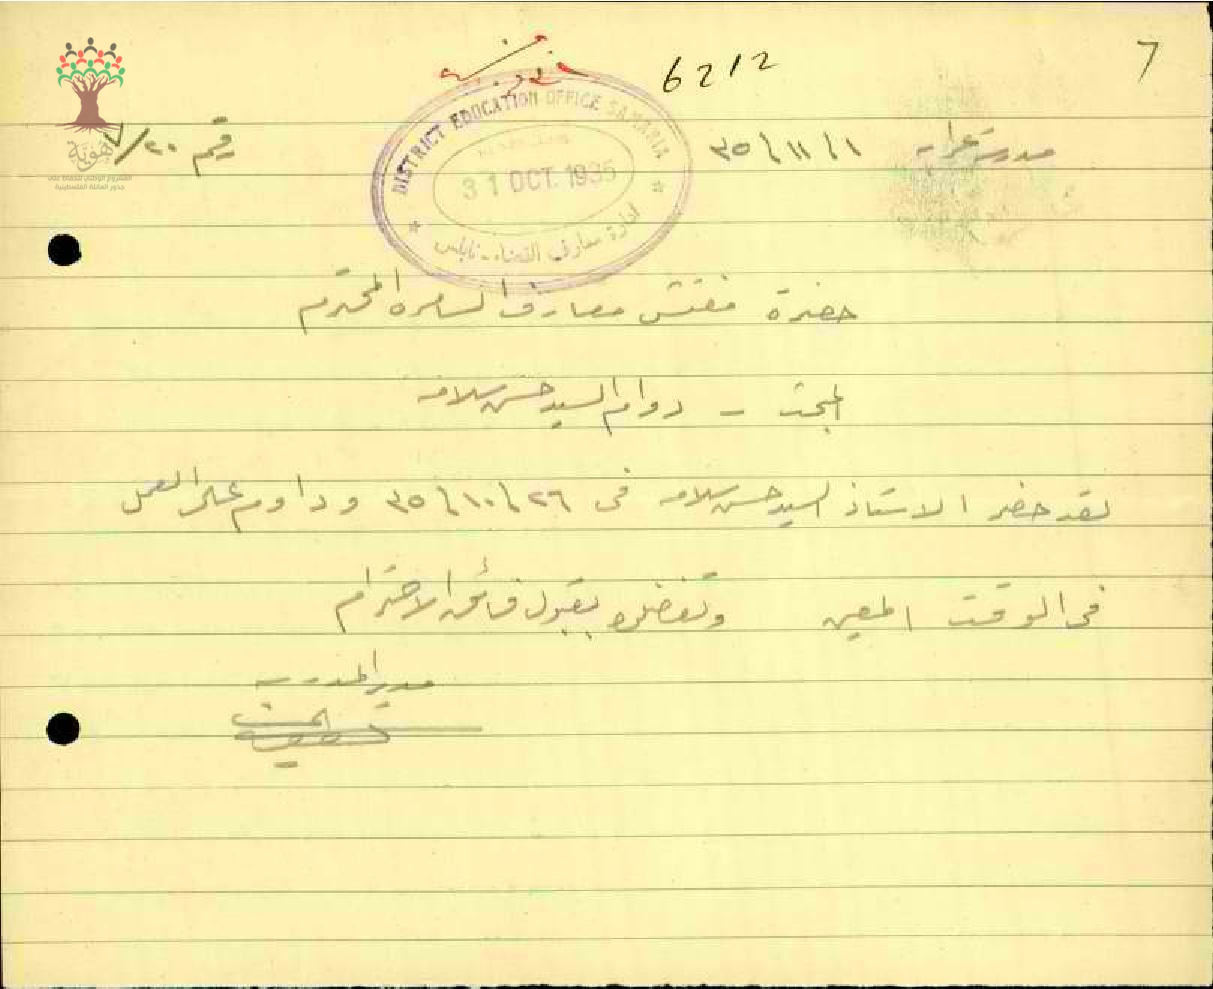 7
6212
مدرسة عرابه ١/١١/٣٥
رقم ٢٠/٧
DISTRICT EDUCATION OFFICE SAMARIA
31 OCT. 1935
ادارة معارف القضاء - نابلس
هوية
المشروع الوطني للحفاظ على
جذور العائلة الفلسطينية
حضرة مفتش معارف السامره المحترم
المبحث - دوام السيد حسن سلامه
لقد حضر الاستاذ السيد حسن سلامه في ٢٦/١٠/٣٥ وداوم على العمل
في الوقت المعين وتفضلوا بقبول فائق الاحترام
مدير المدرسه